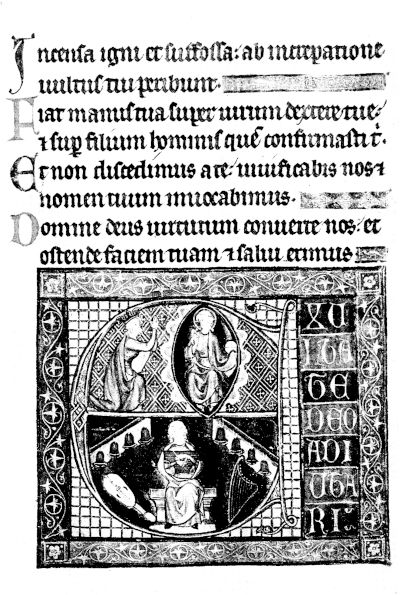 Incensa igni et suffossa: ab increpatione
uultus tui peribunt.
Fiat manus tua super uirum dextere tue:
⁊ sup̄ filium hominis quē confirmasti t̄.
Et non discedimus a te: uiuificabis nos ⁊
nomen tuum inuocabimus.
Domine deus uirtutum conuerte nos: et
ostende faciem tuam ⁊ salui erimus
EXU
LTA
TE
DEO
ADI
UTO
RI